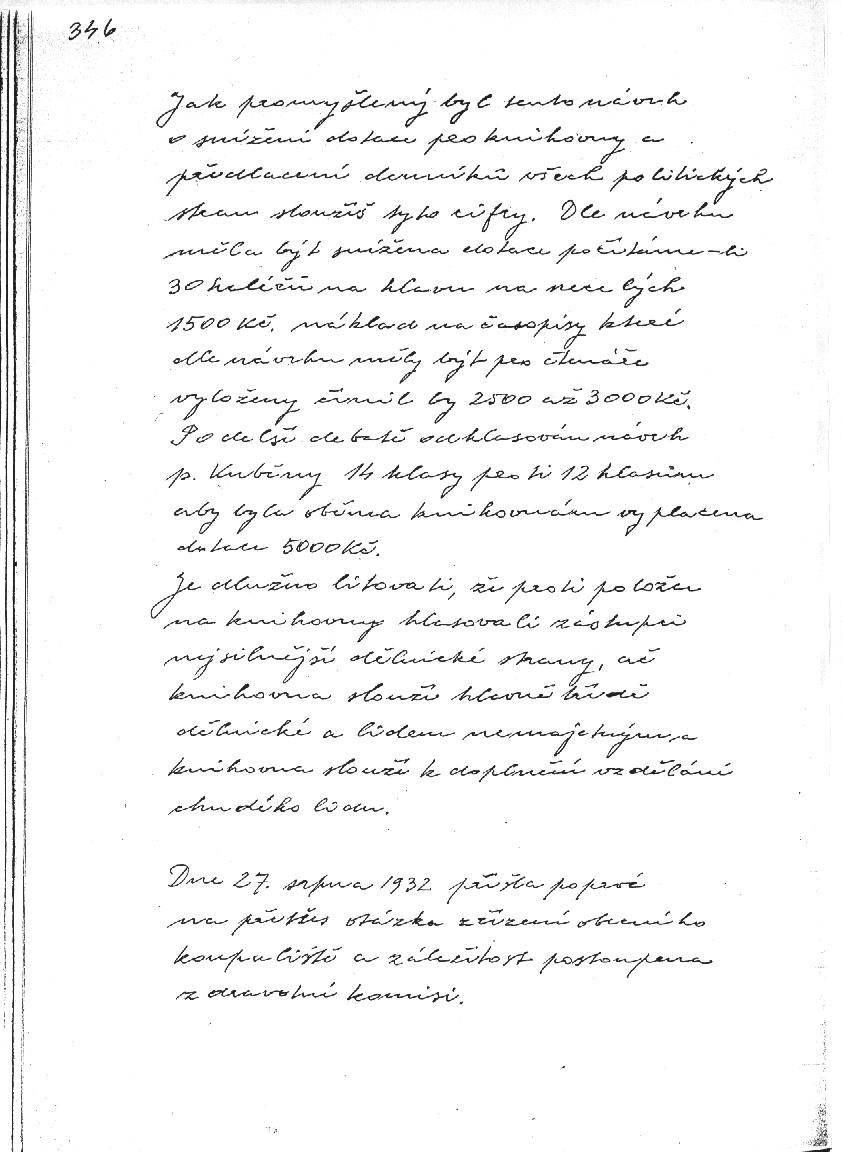 346
Jak promyšlený byl tento návrh
o snížení dotace pro knihovny a
předlacení denníků všech politických
stran sloužiš tyto cifry. Dle návrhu
měla být snížena dotace počítáme-li
30 haléřů na hlavu na necelých
1500 Kč. náklad na časopisy které
dle návrhu měly být pro čtenáře
vyloženy činil by 2500 až 3000 Kč.
Po delší debatě odhlasován návrh
p. Kuběny 14 hlasy proti 12 hlasům
aby byla oběma knihovnám vyplacena
dotace 5000 Kč.
Je dlužno litovati, že proti položce
na knihovny hlasovali zástupci
nejsilnější dělnické strany, ač
knihovna slouží hlavně třídě
dělnické a lidem nemajetným, a
knihovna slouží k doplnění vzdělání
chudého lidu.
Dne 27. srpna 1932 přišla poprvé
na přetřes otázka zřízení obecního
koupaliště a záležitost postoupena
zdravotní komisi.